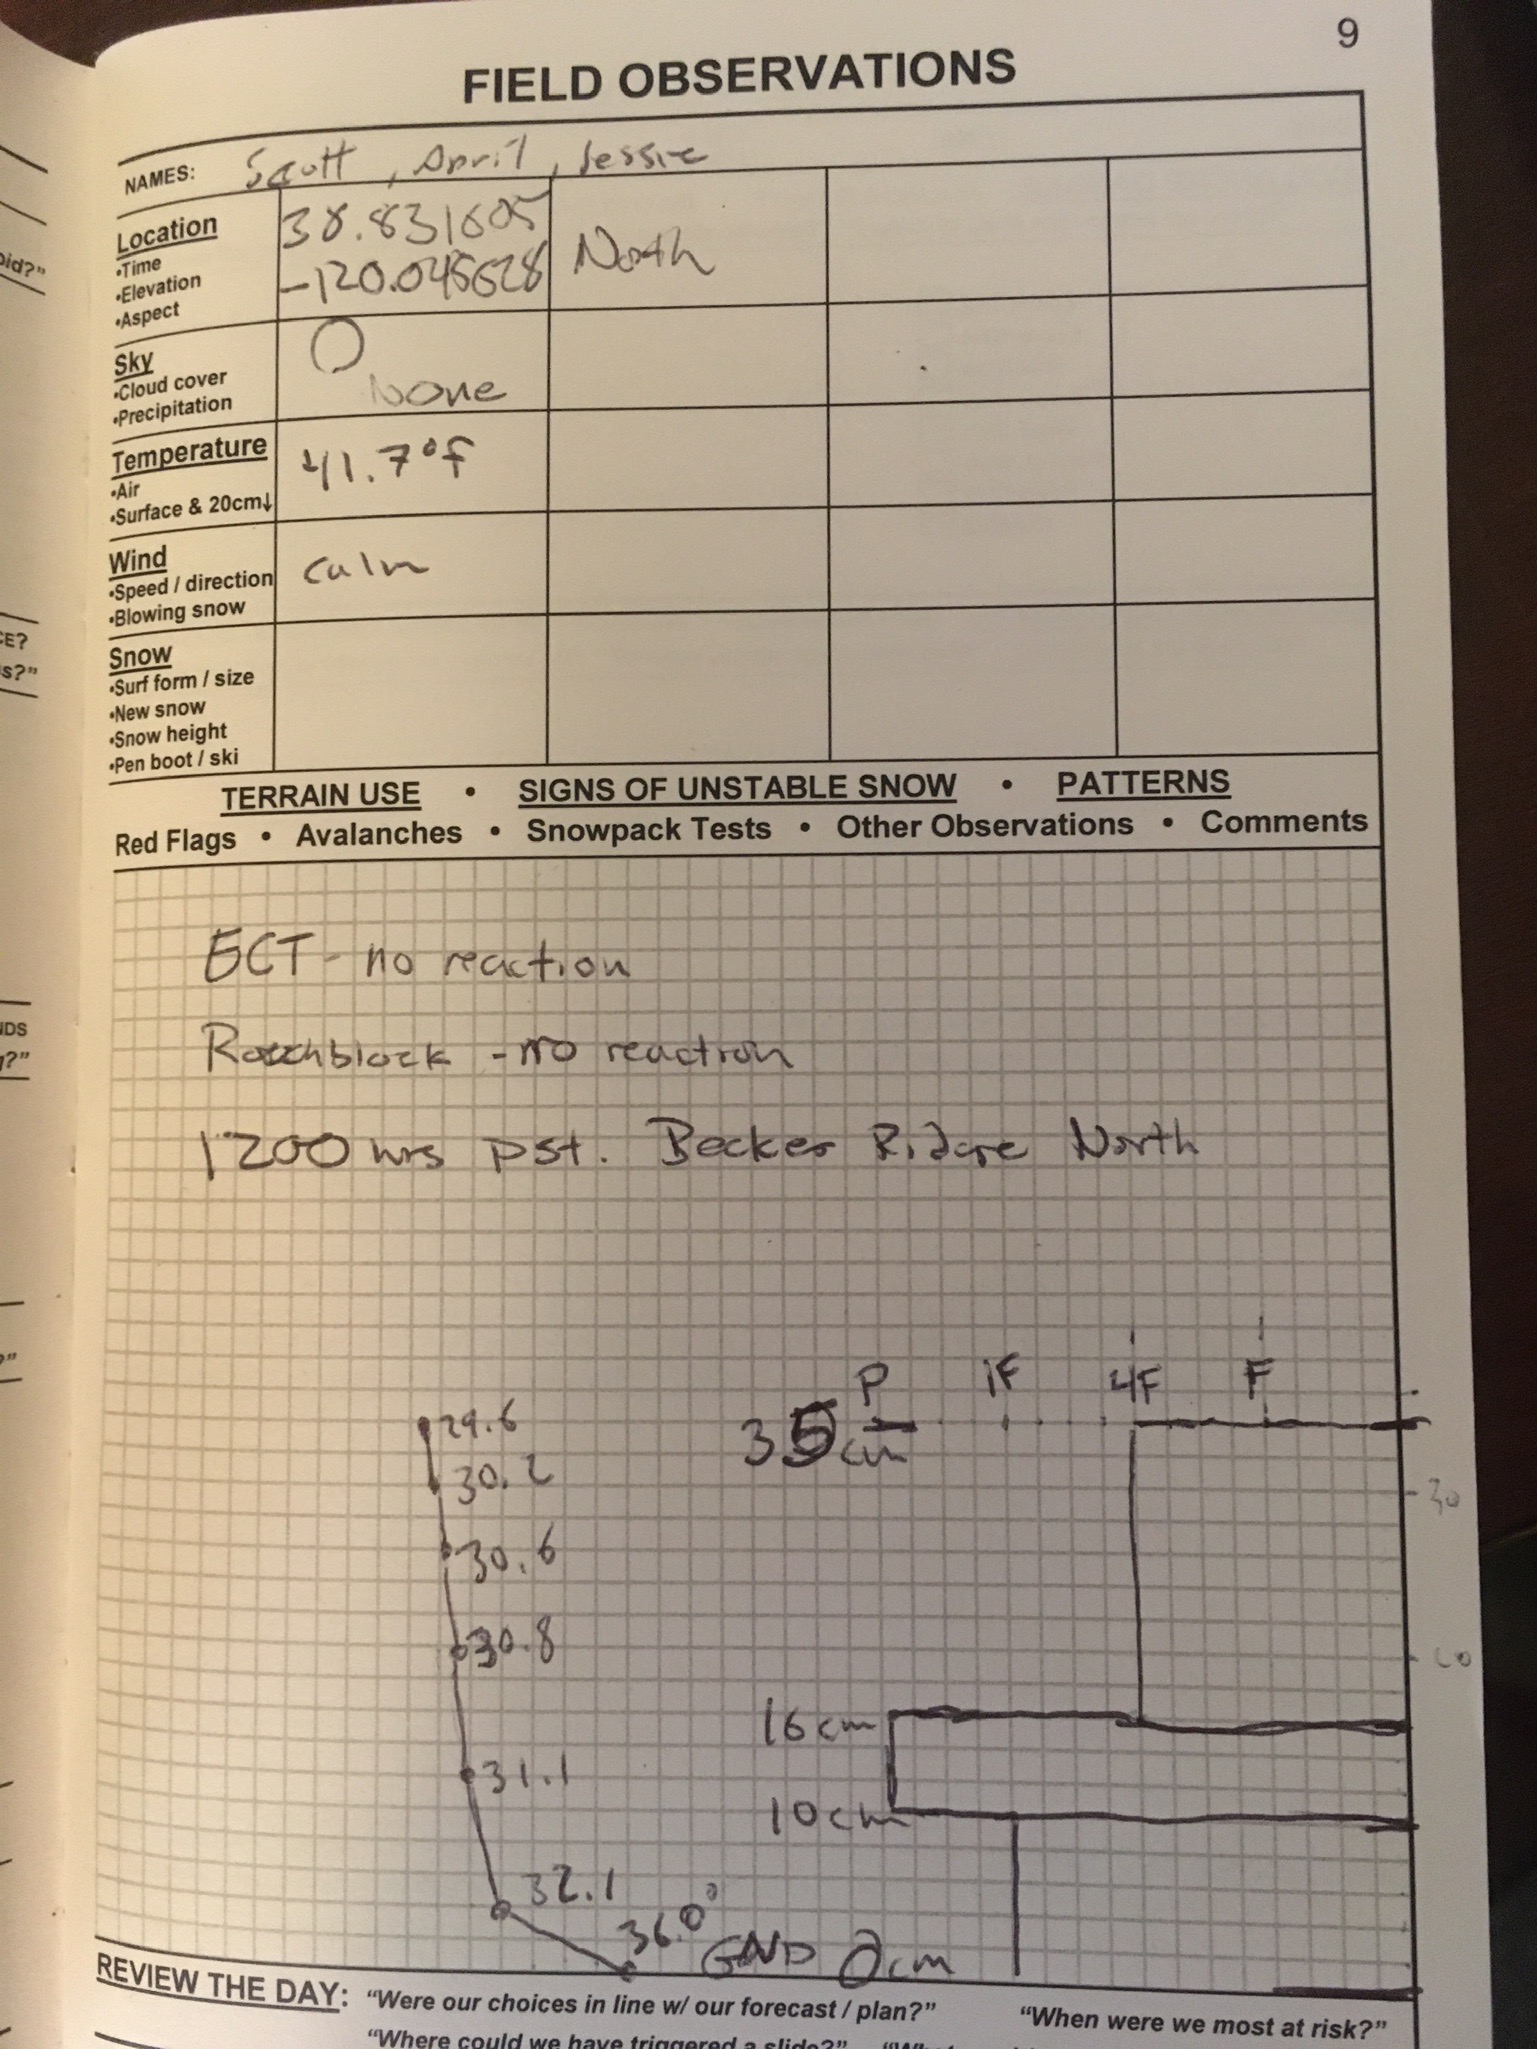 9
FIELD OBSERVATIONS
NAMES: Scott, April, Jessie
Location
•Time
•Elevation
•Aspect
38.831605
-120.045628
North
Sky
•Cloud cover
•Precipitation
O
None
Temperature
•Air
•Surface & 20cm↓
41.7°F
Wind
•Speed / direction
•Blowing snow
calm
Snow
•Surf form / size
•New snow
•Snow height
•Pen boot / ski
TERRAIN USE • SIGNS OF UNSTABLE SNOW • PATTERNS
Red Flags • Avalanches • Snowpack Tests • Other Observations • Comments
ECT - no reaction
Rotchblock - no reaction
1200 hrs pst. Becker Ridge North
P 1F 4F F
29.6
35cm
30.2
30
30.6
30.8
16cm
31.1
10cm
32.1
36.0°
GND 0cm
REVIEW THE DAY: "Were our choices in line w/ our forecast / plan?" "When were we most at risk?"
"Where could we have triggered a slide?"
oid?"
CE?
s?"
NDS
?"
?"